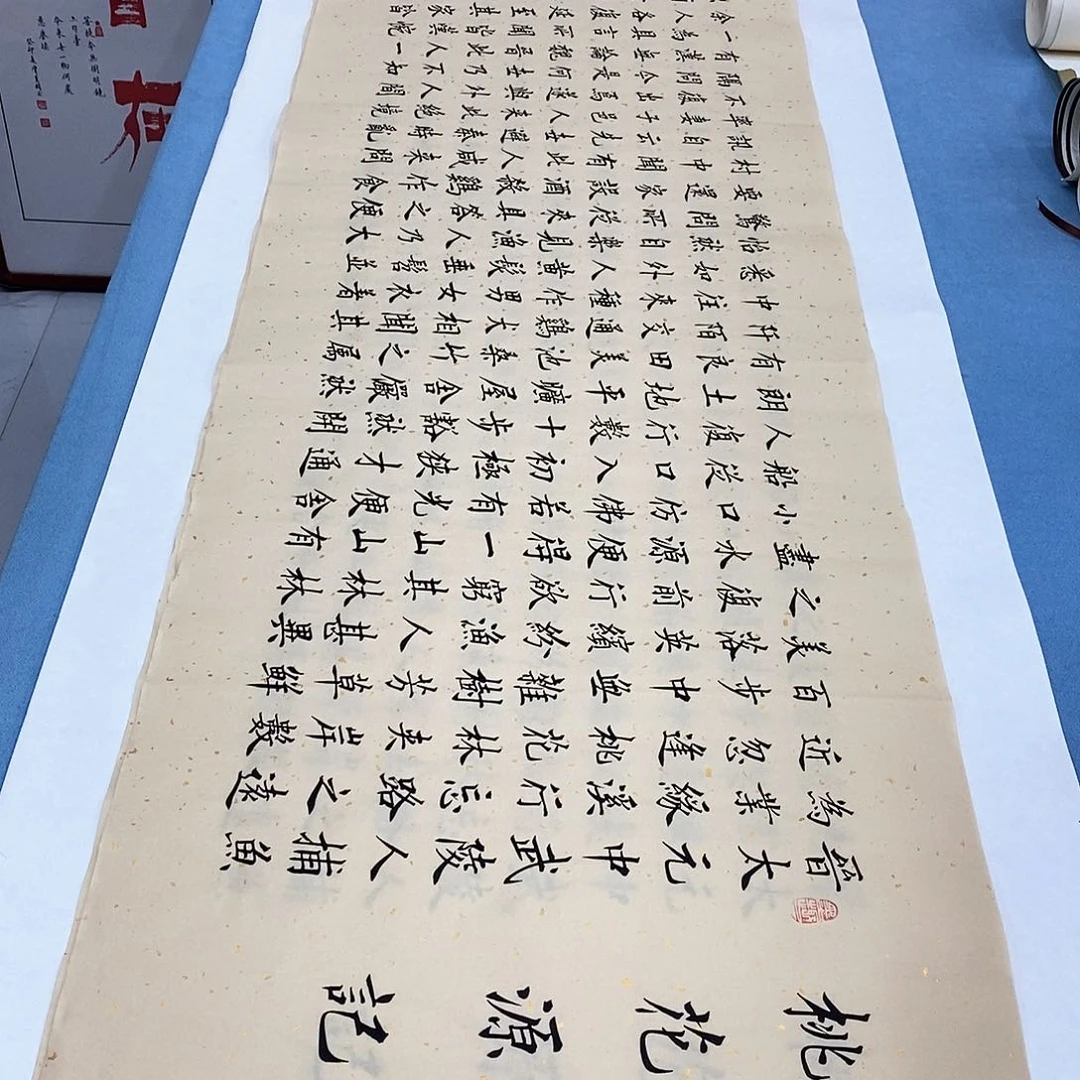 桃花源記
晉太元中武陵人捕魚
為業緣溪行忘路之遠
近忽逢桃花林夾岸數
百步中無雜樹芳草鮮
美落英繽紛漁人甚異
之復前行欲窮其林林
盡水源便得一山山有
小口仿佛若有光便舍
船從口入初極狹才通
人復行數十步豁然開
朗土地平曠屋舍儼然
有良田美池桑竹之屬
阡陌交通鷄犬相聞其
中往來種作男女衣着
悉如外人黃髮垂髫並
怡然自樂見漁人乃大
驚問所從來具答之便
要還家設酒殺鷄作食
村中聞有此人咸來問
訊自云先世避秦時亂
率妻子邑人來此絕境
不復出焉遂與外人間
隔問今是何世乃不知
有漢無論魏晉此人一
一為具言所聞皆惋
余人各復延至其家皆